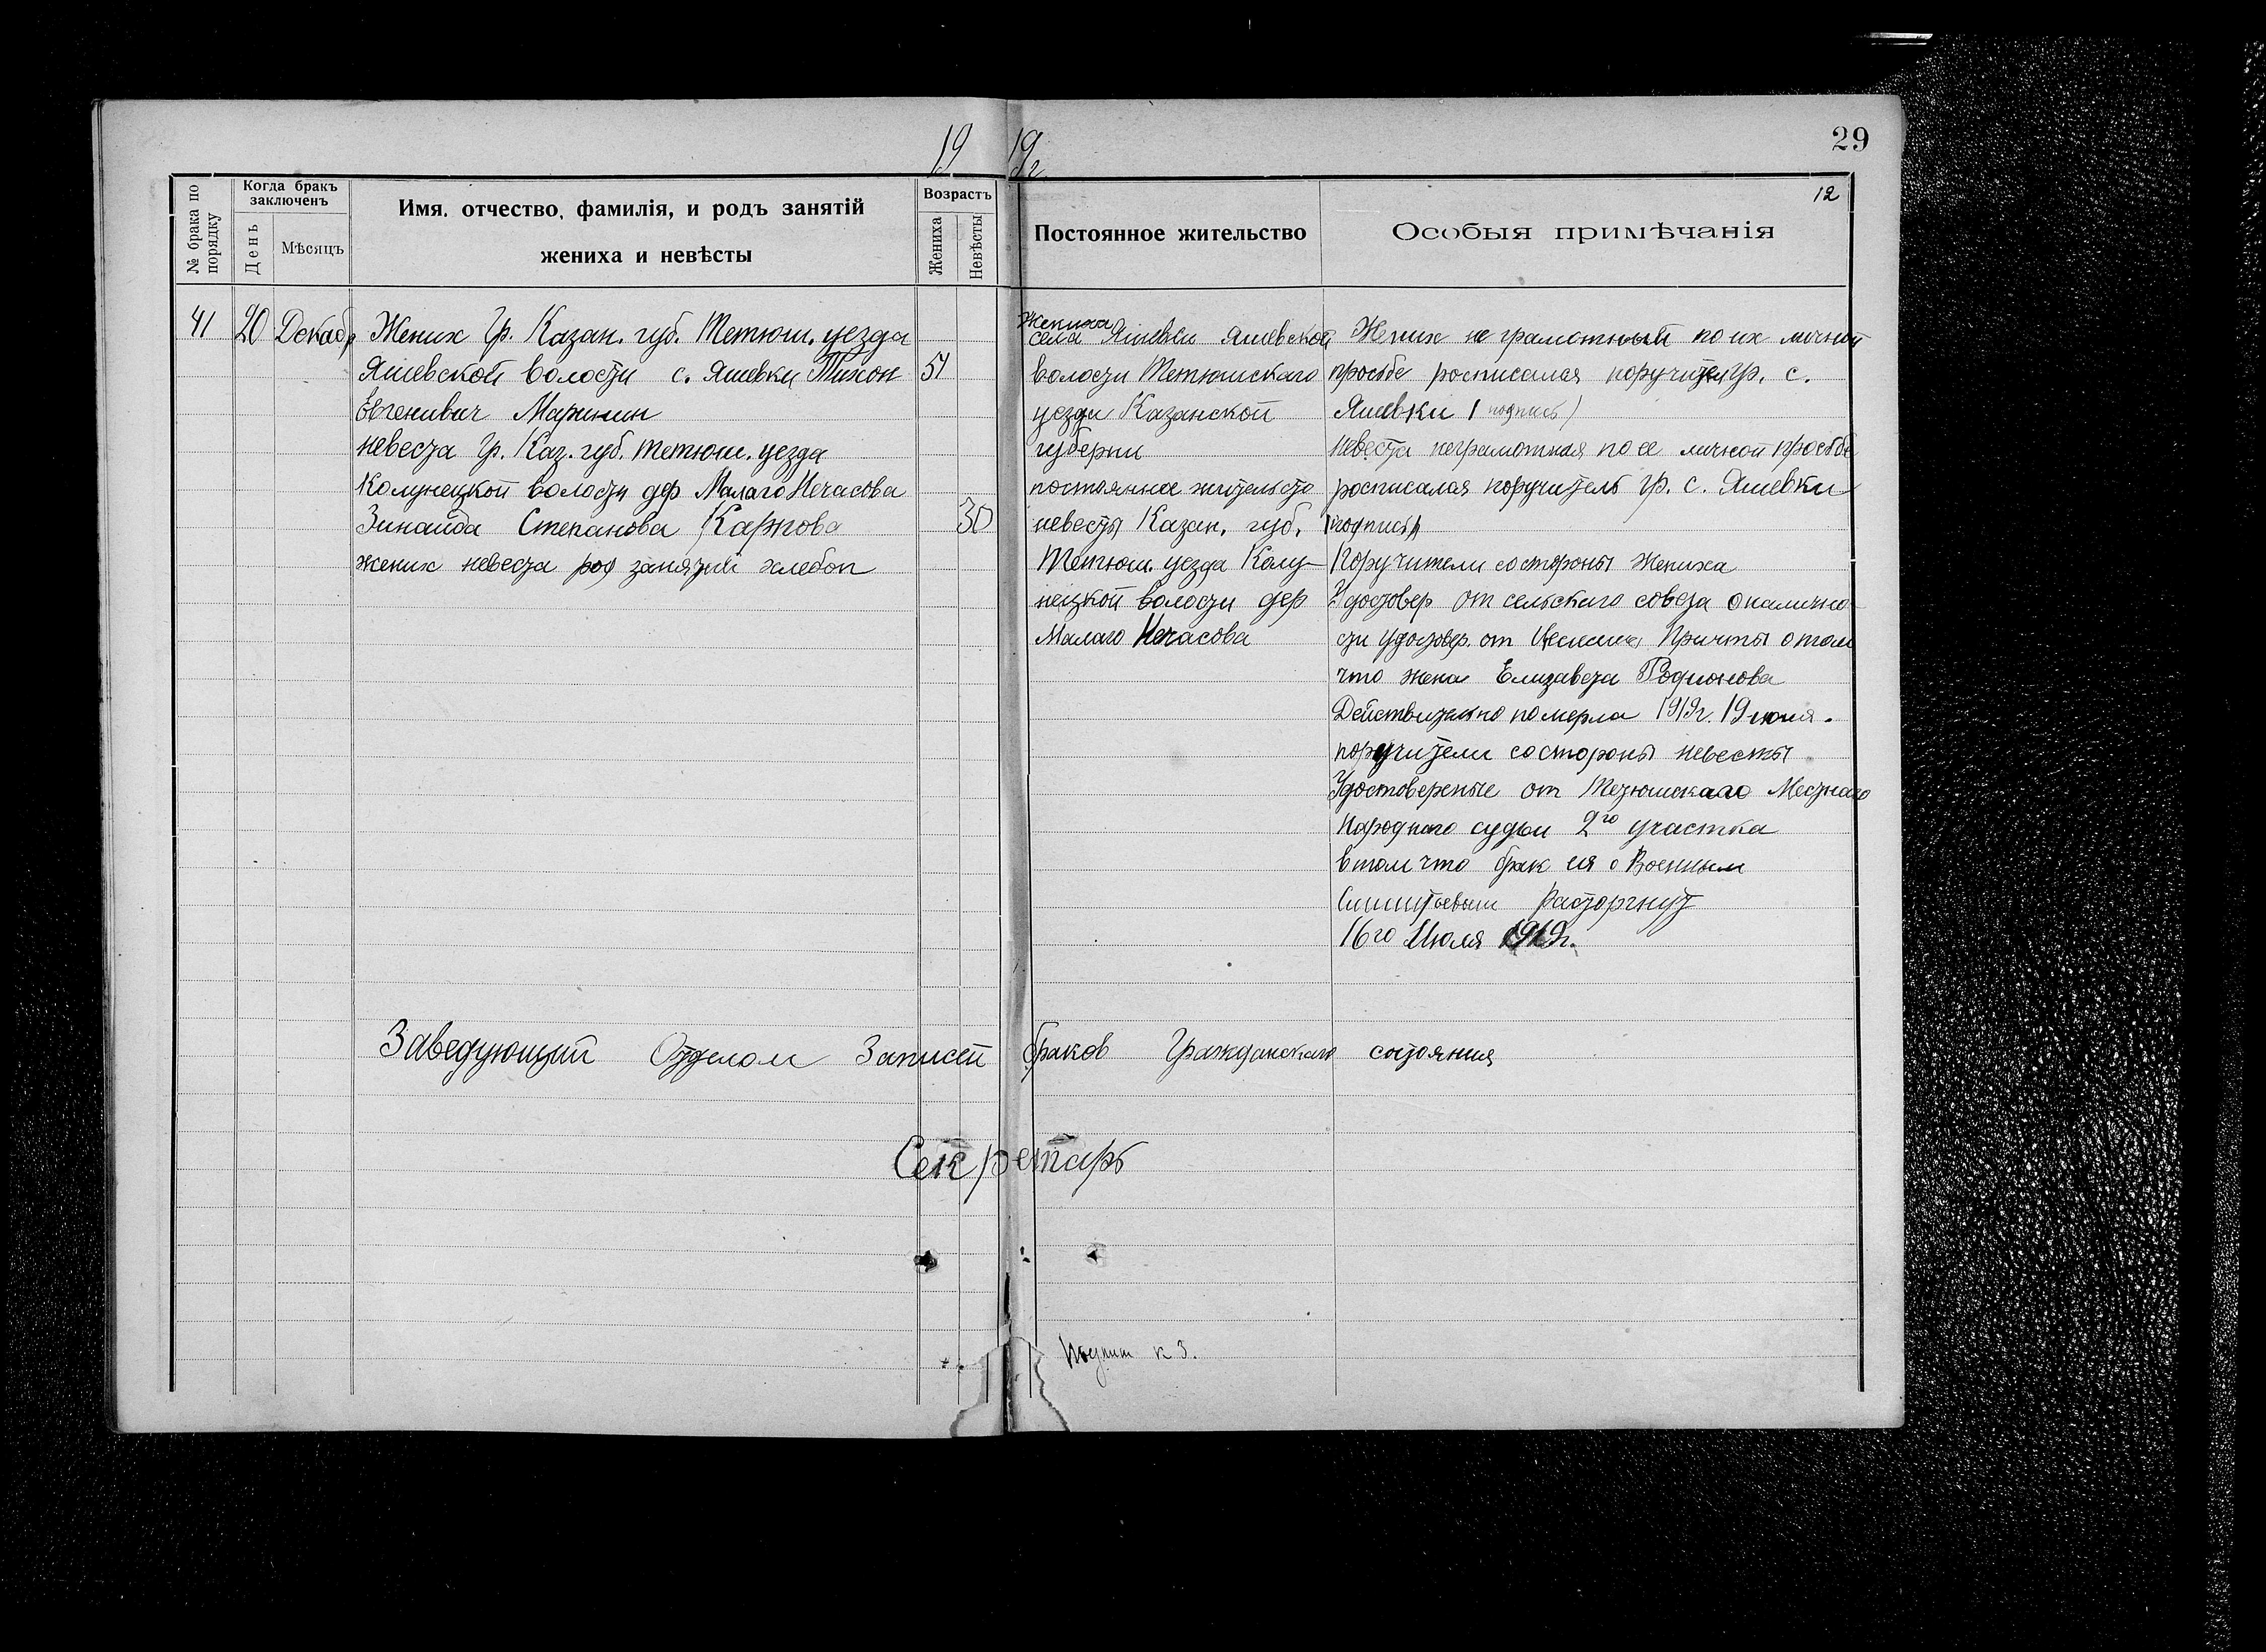 19 19г.
29
12
№ брака по порядку
Когда бракъ заключенъ
День
Мѣсяцъ
Имя, отчество, фамилія, и родъ занятій
жениха и невѣсты
Возрастъ
Жениха
Невѣсты
Постоянное жительство
Особыя примѣчанія
41 20 Декабр Жених Гр. Казан. губ. Тетюш. уезда
Яшевской волости с. Яшевки Тихон 51
Евгенивич Маринин
невеста Гр. Каз. губ. Тетюш. уезда
Колунецкой волости дер Малаго Нечасова
Зинаида Степанова Карпова 30
жених невеста род занятий хлебоп
Жениха
села Яшевки Яшевской
волости Тетюшскаго
уезда Казанской
губерни
постоянное жительсто
невесты Казан. губ.
Тетюш. уезда Колу-
нецкой волости дер
Малаго Нечасова
Жених не грамотный по их личной
просьбе росписался поручител гр. с.
Яшевки (подпись)
невеста неграмотная по ее личной просьбе
росписался поручитель гр. с. Яшевки
(подпись)
Поручители со стороны жениха
Удостовер от сельскаго совета о налично-
сти удостовер. от Причты о том
что жена Елизавета Родионова
Действительно померла 1919г. 19 июля.
поручители со стороны невесты
Удостоверение от Тетюшскаго Местнаго
Народнаго судьи 2го участка
в том что брак ея с Военным
Расторгнут
16го Июля 1919г.
Заведующий Отделом Записей браков Гражданскаго состояния
Секретарь
к 3.